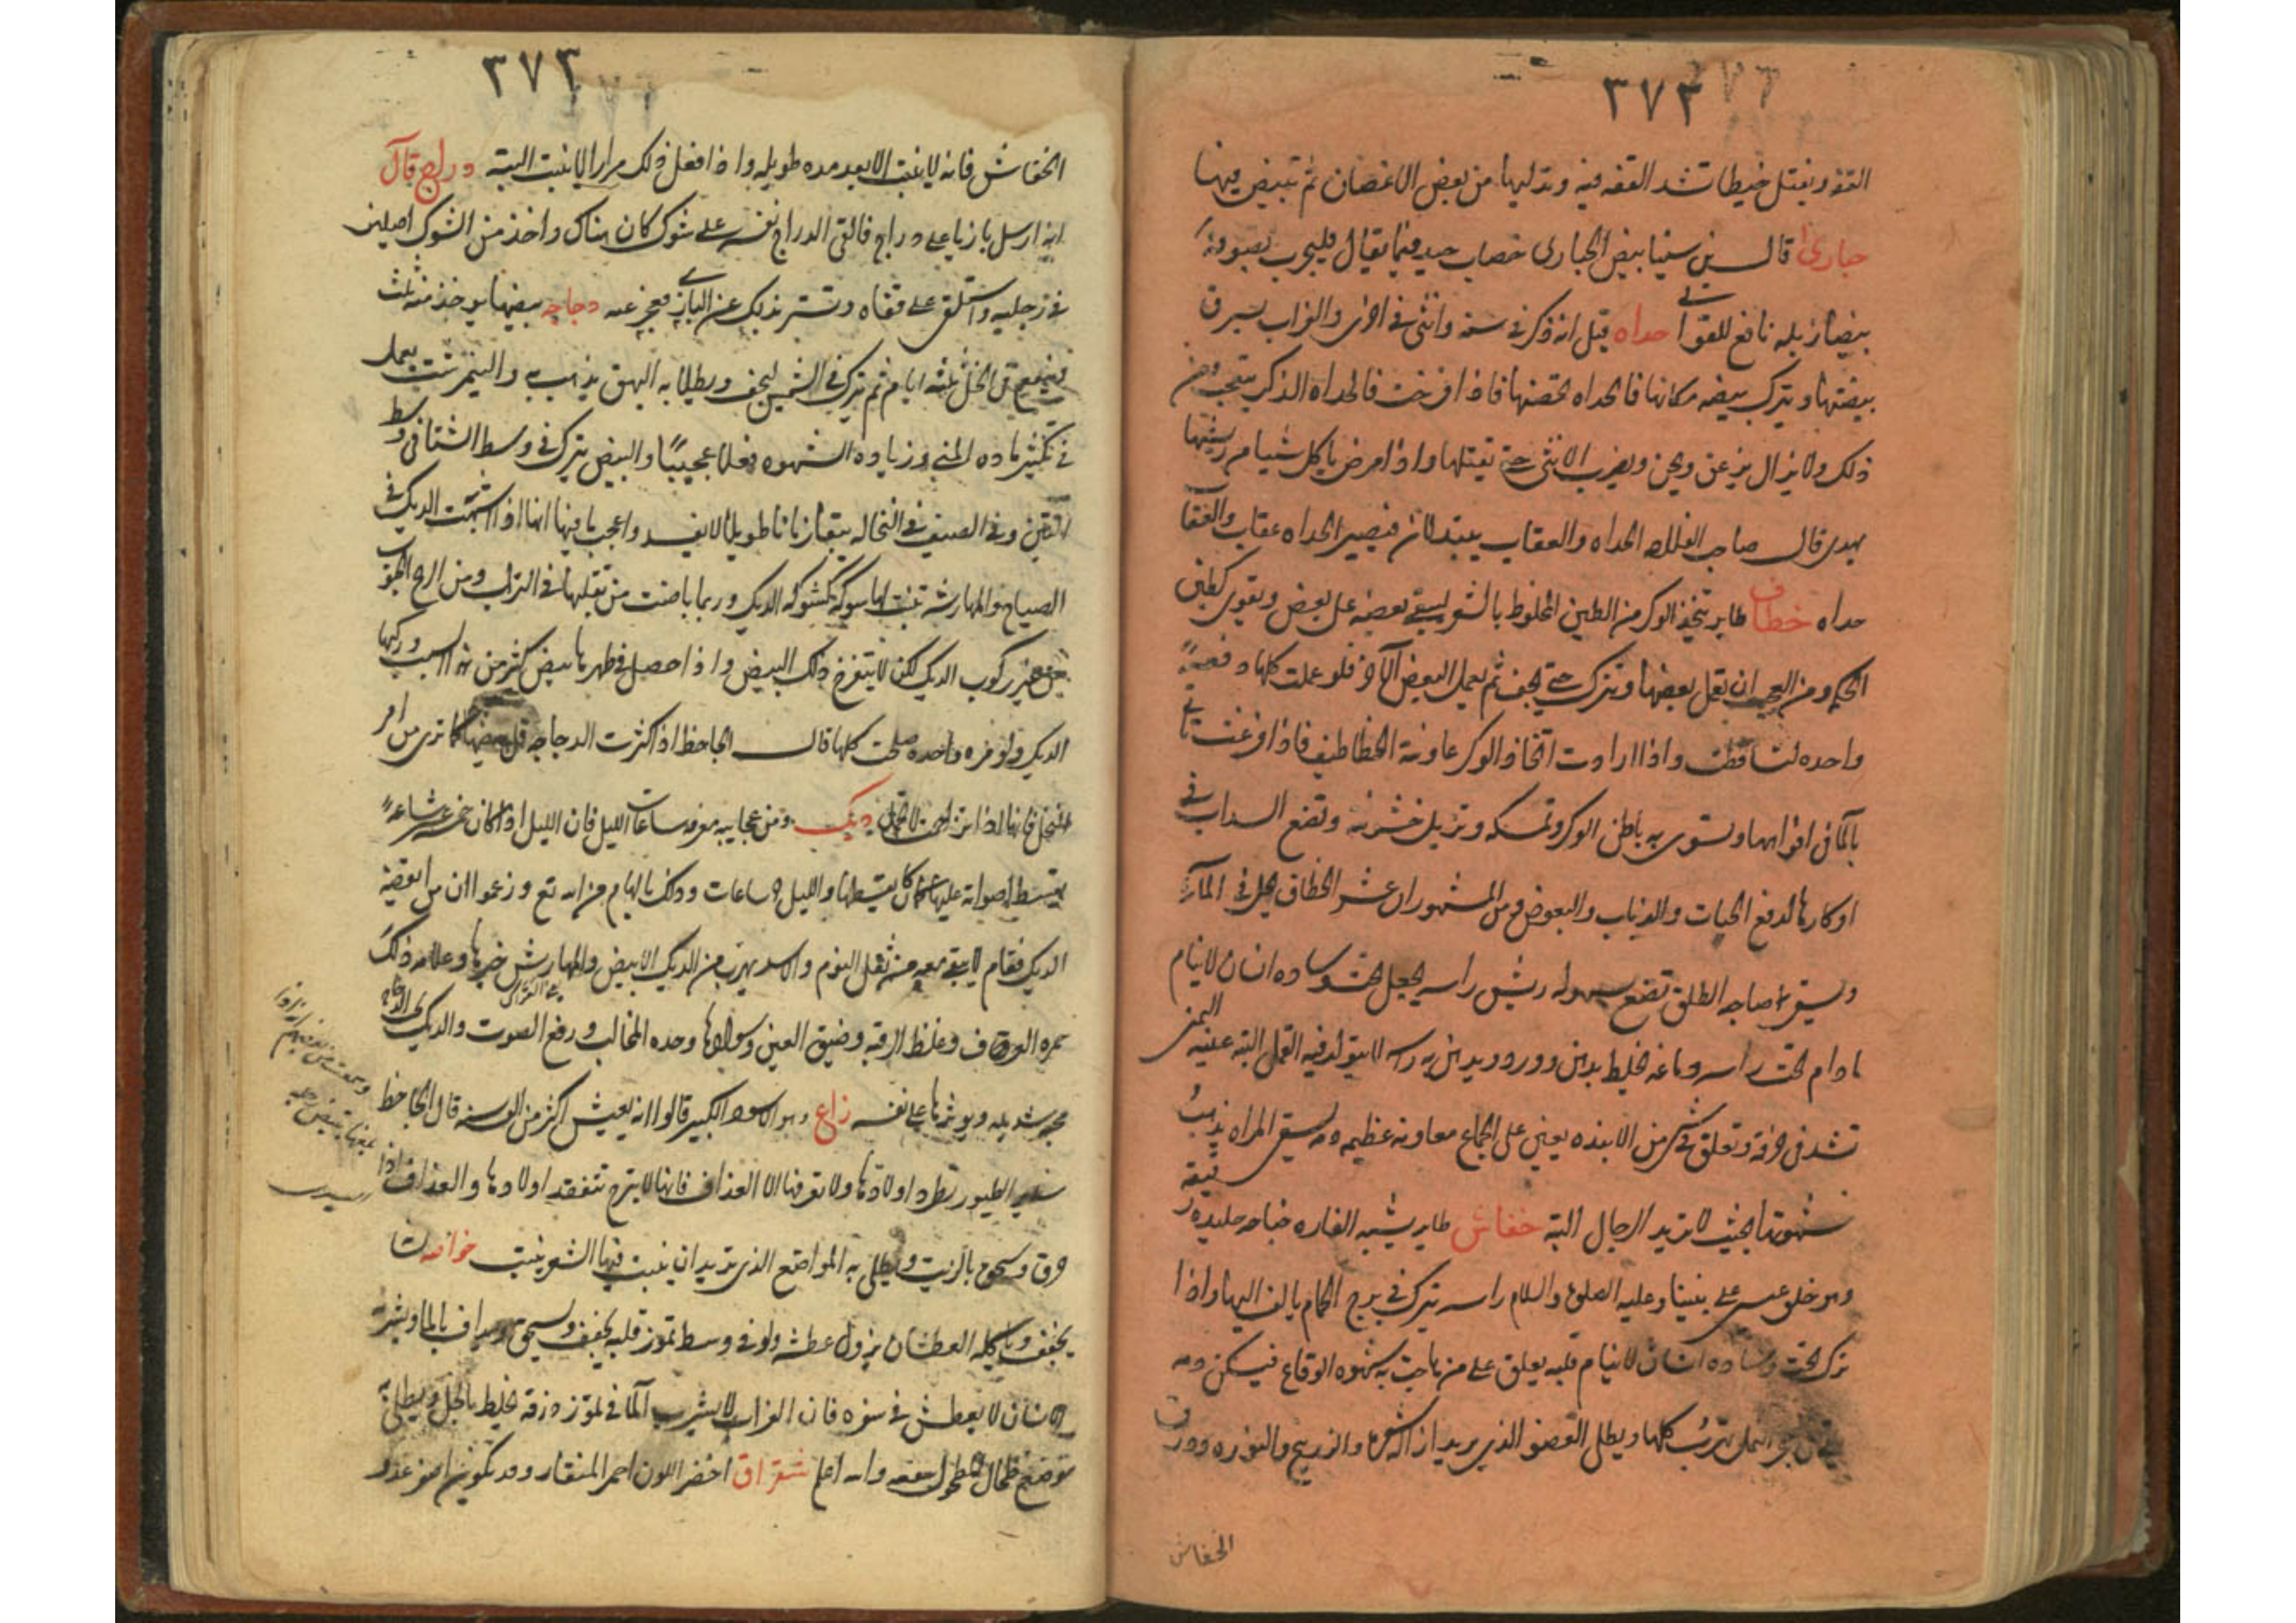 ٣٧٣
القفه ويفتل خيطا تشد القفه فيه وتدليها من بعض الاغصان ثم تبيض فيها
حبارى قال بن سينا بيض الحبارى خضاب جيد فيما يقال فليجرب بصوفه
بيضا زبله نافع للقوابي حداه قيل انه ذكر في سنه وانثى في اخرى والغراب يسرق
بيضتها ويترك بيضه مكانها فالحداه تحضنها فاذا افرخت فالحداه الذكر يتعجب من
ذلك ولا يزال يزعق ويحن ويضرب الانثى حتى يقتلها واذا مرض ياكل شيا من ريشها
يبرى قال صاحب الفلاحه الحداه والعقاب يتبدلان فيصير الحداه عقاب والعقاب
حداه خطاف طاير يتخذ الوكر من الطين المخلوط بالشعر ليبقى بعضه على بعض ويقوى كطين
الحكم ومن العجب ان يعمل بعضها ويترك حتى يجف ثم يعمل البعض الاخر فلو عملت كلها دفعة
واحده لتساقطت واذا ارادت اتخاذ الوكر عاونته الخطاطيف فاذا فرغت تاتى
بالما فى افواهها وتسوى به باطن الوكر وتمسكه وتزيل خشونته وتضع السداب فى
اوكارها لدفع الحيات والذباب والبعوض ومن المشهور ان عش الخطاف يحل فى الما
ويسقى صاحبه الطلق تضع بسهوله ريش راسه يجعل تحت وساده انسان لا ينام
ما دام تحت راسه دماغه يخلط بدهن ورد ويدهن به راسه لا يتولد فيه القمل البته عينه اليمنى
تشد فى خرقه وتعلق فى شى من الانبذه يعين على الجماع معاونه عظيمه دمه يسقى المراه يذهب
شهوتها بحيث لا تريد الرجال البته خفاش طاير يشبه الفاره جناحه جليده رقيقه
وهو خلق عيسى على نبينا وعليه الصلوة والسلام راسه يترك فى برج الحمام يالف اليها واذا
ترك تحت وساده انسان لا ينام قلبه يعلق على من هاجت به شهوه الوقاع فيسكن دمه
النمل تهرب كلها ويطلى العضو الذى يريد ازاله شعره والزرنيخ والنوره وورق
الخفاش
٣٧٣
الخفاش فانه لا ينبت الا بعد مده طويله واذا فعل ذلك مرارا لا ينبت البته دراج قال
انه ارسل بازيا على دراج فالقى الدراج نفسه على شوك كان هناك واخذ من الشوك اصلين
فى رجليه واستلقى على قفاه وتستر بذلك عن البازى فعجز عنه دجاجه بيضها يوخذ منه ثلث
فى الخل ثلثه ايام ثم يترك فى الشمس ليجف ويطلا به البهق يذهب به والنيمرشت يعمل
فى تكثير ماده المنى وزياده الشهوه فعلا عجيبا والبيض يترك فى وسط الشتا فى وسط
التبن وفى الصيف فى النخاله يبقا زمانا طويلا لا يفسد واعجب ما فيها انها اذا اشبهت الديك فى
الصياح والمهارشه تنبت لها شوكه كشوكه الديك وربما باضت من تقلبها فى التراب ومن الريح الجنوب
من غير ركوب الديك لكن لا يتفرخ ذلك البيض واذا حصل فى ظهرها بيض كثير من هذا السبب وركبها
الديك ولو مره واحده صلحت كلها قال الجاحظ اذا كثرت الدجاجه قل بيضها كما ترى من امر
النخل فانها اذا تزاحمت لا تحمل ديك ومن عجايبه معرفه ساعات الليل فان الليل اذا كان خمسه عشر ساعة
يقسط اصواته عليها كما كان يقسطها والليل ٩ ساعات وذلك بالهام من الله تع وزعموا ان من ايقضه
الديك فقام لا يبقى معه من ثقل النوم والاسد يهرب من الديك الابيض والمهارش خيرها وعلامه ذلك
حمره العرف وغلظ الرقبه وضيق العين وسوادها وحده المخالب ورفع الصوت والديك على الدجاج
محبه شديده ويوثرها على نفسه زاغ وهو الاسود الكبير قالوا انه يعيش اكثر من الف سنه قال الجاحظ
ساير الطيور تطرد اولادها ولا تعرفها الا الغداف فانها لا يبرح تتفقد اولادها والغداف اذا
حرق وسحق بالزيت ويطلى به المواضع الذى تريد ان ينبت فيها الشعر ينبت
يجفف وياكله العطشان يزول عطشه ولو فى وسط تموز قلبه يجفف ويسحق ويداف بالما ويشربه
الانسان لا يعطش فى سفره فان الغراب لا يشرب الما فى تموز ذرقه يخلط بالخل ويطلى به
موضع طحال المطحول ينفعه والله اعلم شقراق اخضر اللون احمر المنقار